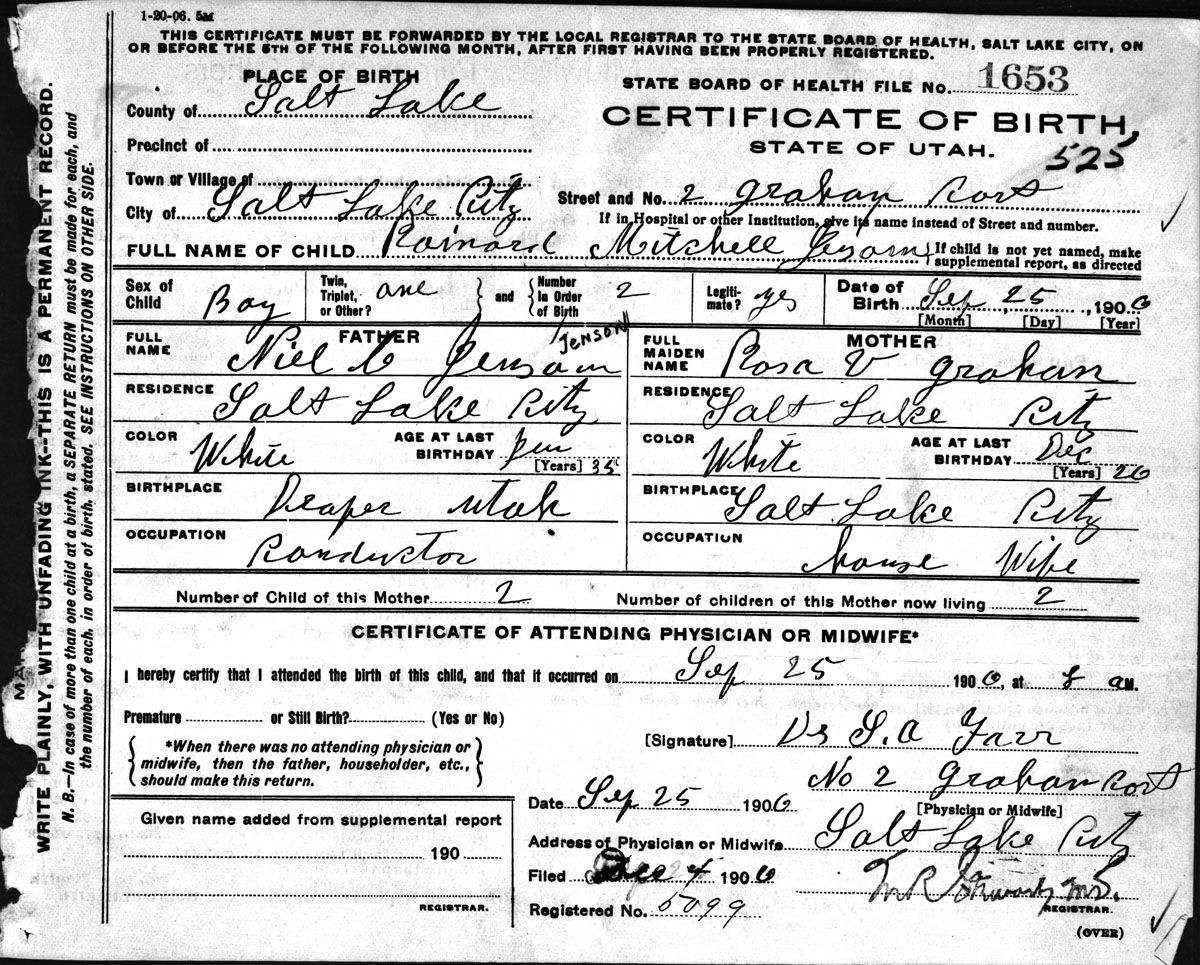 1-20-06. 5M
THIS CERTIFICATE MUST BE FORWARDED BY THE LOCAL REGISTRAR TO THE STATE BOARD OF HEALTH, SALT LAKE CITY, ON
OR BEFORE THE 5TH OF THE FOLLOWING MONTH, AFTER FIRST HAVING BEEN PROPERLY REGISTERED.
PLACE OF BIRTH
STATE BOARD OF HEALTH FILE No. 1653
County of Salt Lake
CERTIFICATE OF BIRTH,
Precinct of
STATE OF UTAH.
525
Town or Village of
Street and No. 2 Graham Cort
City of Salt Lake City
If in Hospital or other Institution, give its name instead of Street and number.
FULL NAME OF CHILD Rainard Mitchell
If child is not yet named, make supplemental report, as directed
Sex of Child Boy
Twin, Triplet, or Other? one
and Number in Order of Birth 2
Legiti-mate? yes
Date of Birth Sep 25, 1906
[Month] [Day] [Year]
FATHER
FULL NAME Niel C Jenson
JENSON
RESIDENCE Salt Lake City
COLOR White
AGE AT LAST BIRTHDAY 35
[Years]
BIRTHPLACE Draper Utah
OCCUPATION Conductor
MOTHER
FULL MAIDEN NAME Rosa V Graham
RESIDENCE Salt Lake City
COLOR White
AGE AT LAST BIRTHDAY Dec 26
[Years]
BIRTHPLACE Salt Lake City
OCCUPATION house Wife
Number of Child of this Mother 2
Number of children of this Mother now living 2
CERTIFICATE OF ATTENDING PHYSICIAN OR MIDWIFE*
I hereby certify that I attended the birth of this child, and that it occurred on Sep 25 1906, at 8 a M.
Premature or Still Birth? (Yes or No)
*When there was no attending physician or
midwife, then the father, householder, etc.,
should make this return.
[Signature] Dr S. A Farr
No 2 Graham Cort
Date Sep 25 1906
[Physician or Midwife]
Address of Physician or Midwife Salt Lake City
Given name added from supplemental report
190
REGISTRAR.
Filed Dec 4 1906
M R
REGISTRAR.
Registered No. 5099
(OVER)
WRITE PLAINLY, WITH UNFADING INK--THIS IS A PERMANENT RECORD.
N. B.—In case of more than one child at a birth, a SEPARATE RETURN must be made for each, and
the number of each, in order of birth, stated. SEE INSTRUCTIONS ON OTHER SIDE.